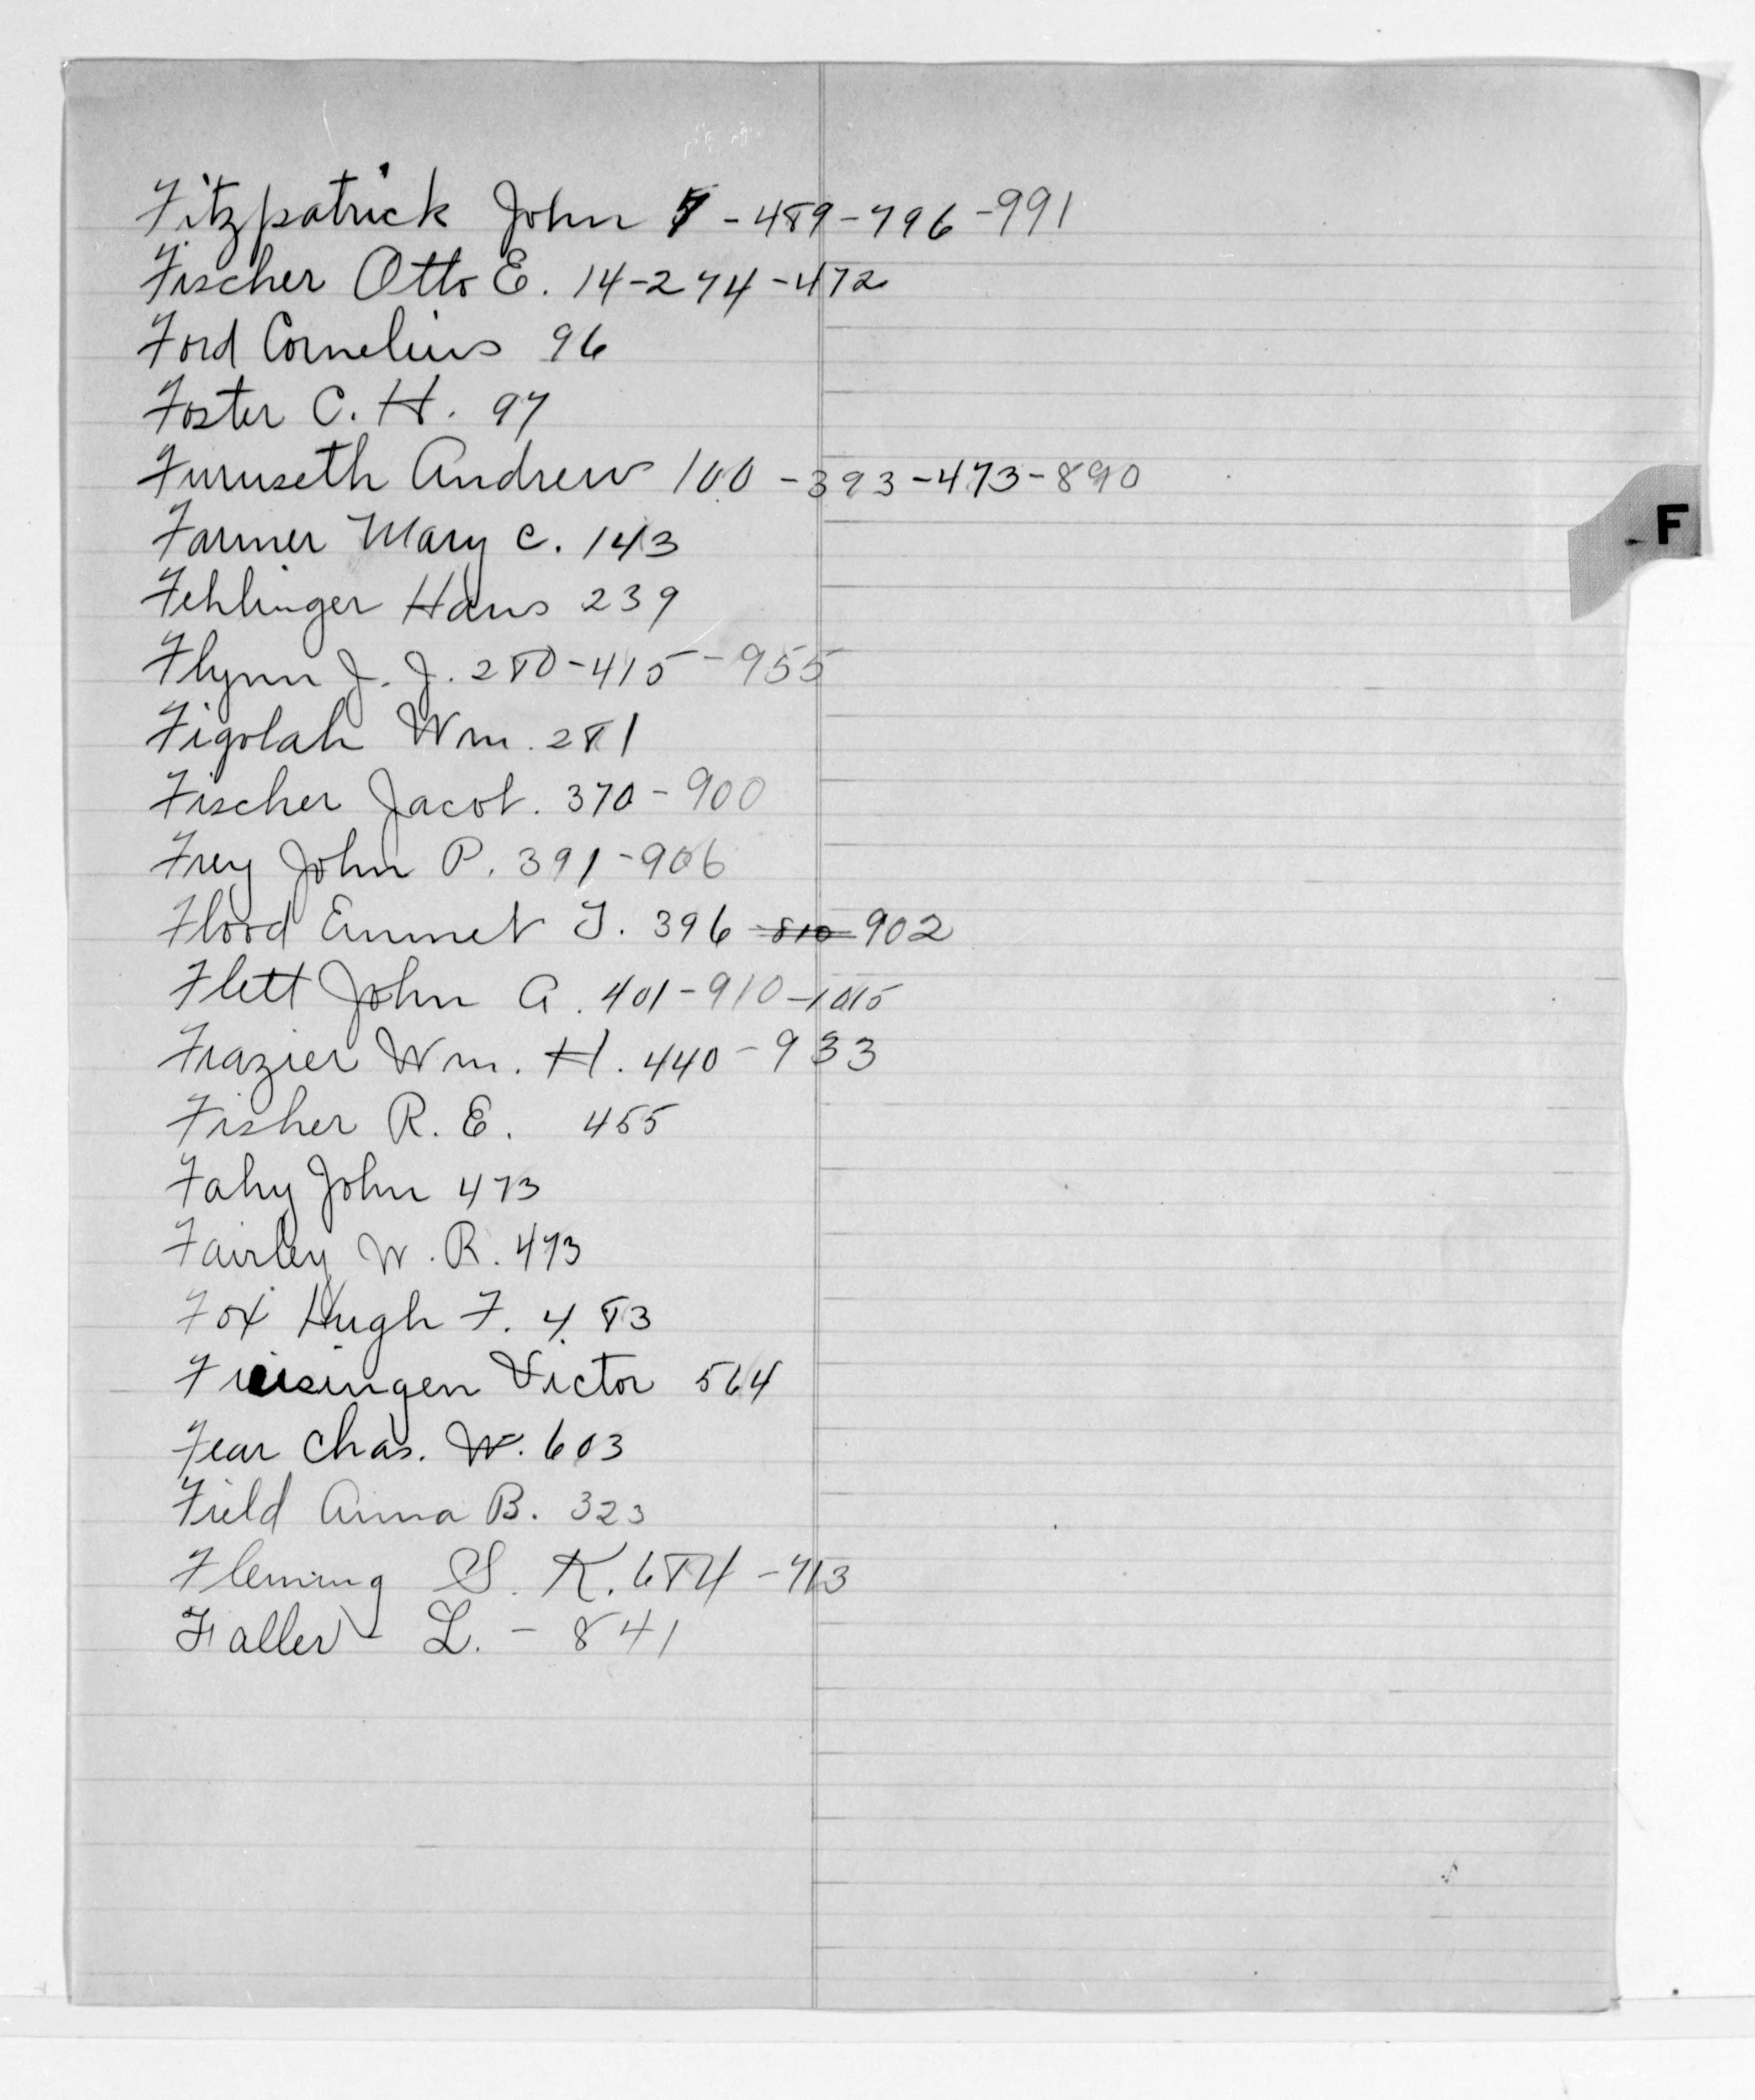 Fitzpatrick John - 489 - 796 - 991
Fischer Otto E. 14 - 274 - 472
Ford Cornelius 96
Foster C. H. 97
Furuseth Andrew 100 - 393 - 473 - 890
F
Farmer Mary C. 143
Fehlinger Hans 239
Flynn J. J. 280 - 415 - 955
Figolah Wm. 281
Fischer Jacob. 370 - 900
Frey John P. 391 - 906
Flood Emmet T. 396 - 810 - 902
Flett John A. 401 - 910 - 1015
Frazier Wm. H. 440 - 933
Fisher R. E. 455
Fahy John 473
Fairley W. R. 473
Fox Hugh F. 483
Victor 564
Fear Chas. W. 603
Field Anna B. 323
Fleming S. K. 684 - 713
Faller - L. - 841